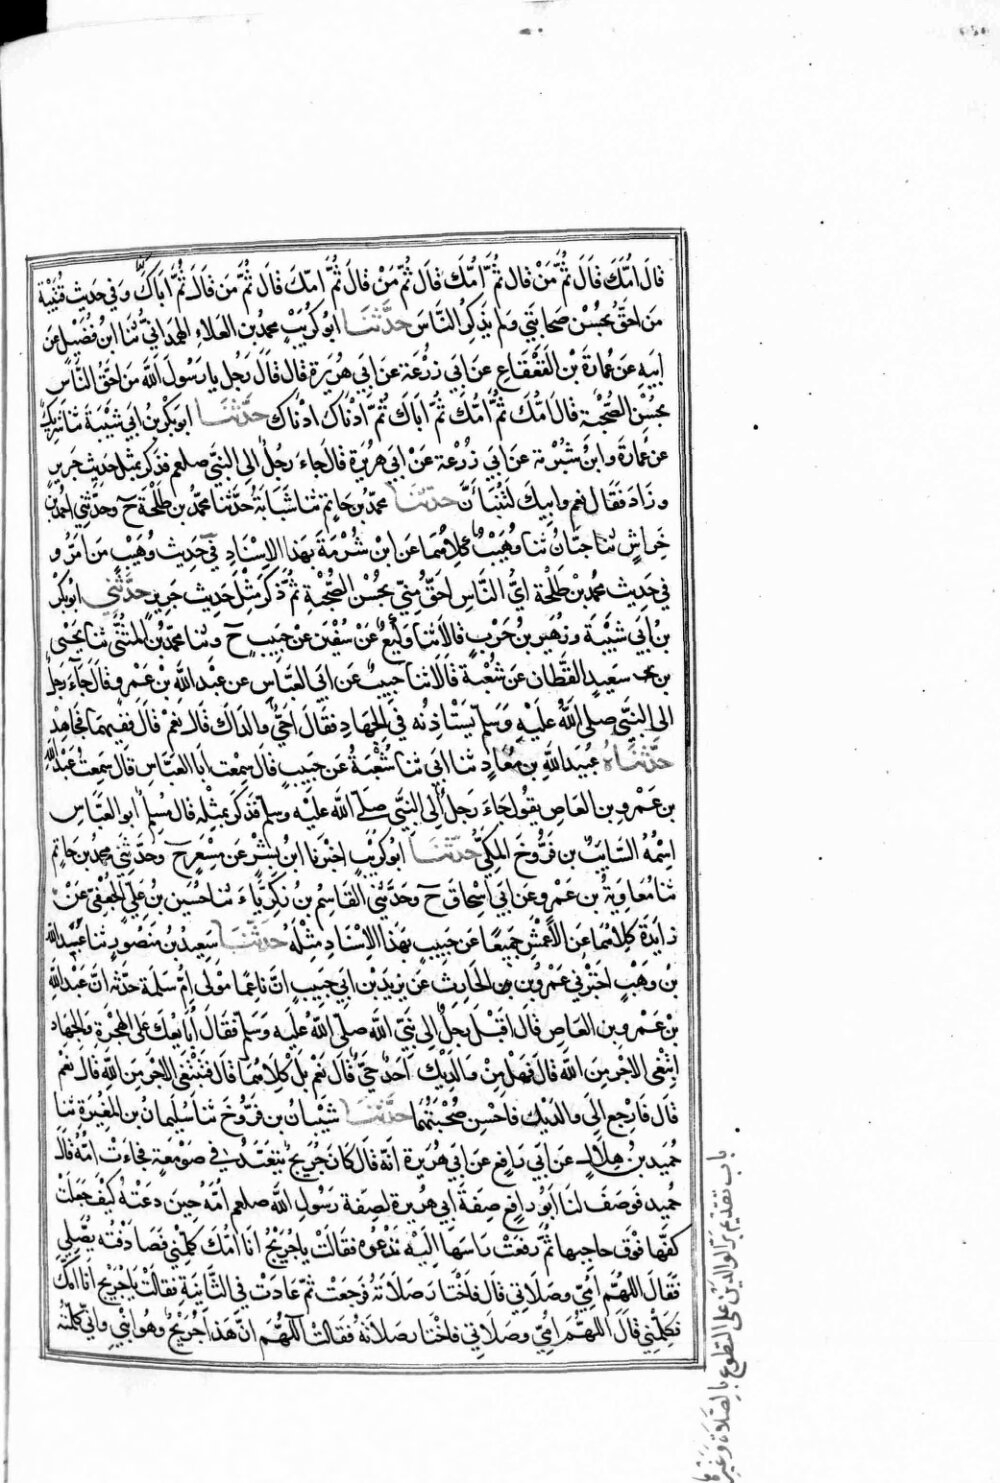 قالَ امّك قالَ ثُمَّ مَنْ قال ثُمَّ امُّك قَالَ ثُمّ مَنْ قالَ ثُمَّ امّكَ قالَ ثُمَّ مَن قَالَ ثُمَّ اَباكَ وَفي حَديثِ قُتَيْبَة
مَن احَقّ بحُسْن صَحَابَتي وَلم يذكر النَّاسَ حدَّثنَا ابُو كرَيْبٍ محمّد بن العَلاءِ الهمدَانيُّ ثنَا ابن فُضَيْل عَن
ابَيهِ عَن عُمارَةَ بْن القَعْقَاع عنَ ابَي زرْعَة عَن ابَي هرَيَرَة قال قالَ رَجُل يا رَسُولَ اللهَ مَن احَقّ النَّاس
بحُسْن الصُّحْبَة قالَ امّك ثمُّ امّك ثمُّ اباكَ ثمَّ ادْناك ادْناك حدَّثنَا ابو بكر بن ابي شَيْبَة ثنا شَريْك
عن عمارَة وابنْ شبْرمة عنَ ابَي زرْعَة عَنْ ابي هرَيرَة قالَ جاءَ رجُلٌ الى النّبي صلعم فذكرَ بمثل حديث جَرير
وزادَ فقَال نعمْ وابيك لتُنبَّأنَّ حدّثَنا محمّد بن حَاتِم ثنا شَبَابَة حَدَّثنا محمّد بن طَلحَة ح وحدّثني احمدُ بن
خراشٍ ثنا حبَّان ثنا وهُيَبٌ كلاهُما عَن ابن شُبرُمَةَ بهَذا الاسْنَادِ في حَديث وُهَيْبٍ مَن ابَرُّ و
في حَديث محُمد بْن طَلْحَة ايُّ النَّاسِ احَقّ مِنّي بحُسْن الصُّحْبَة ثمُّ ذكرَ مثْل حَديث جَرير حدَّثني ابُو بَكْر
بن ابَي شَيْبَة وزهَير بن حَرْبٍ قالاَ ثنا وَكيْعٌ عَنْ سُفْيَن عَنْ حَبيبٍ ح وثنا محمّد بن المثنَّى ثنا يَحْيى
بن سعيدٍ القَطَّان عَن شُعْبة قالاَ ثنا حبيبٌ عَن ابي العَبَّاسِ عن عَبْد اللهَ بْن عَمْرو قالَ جَاءَ رجُلٌ
الى النبيّ صلى اللهُ عليَه وَسَلم يستَاذِنُه في الجهَادِ فقَالَ احَيٌّ والداك قال نعَمْ قالَ ففيهما فجَاهدْ
حدَّثنَاه عبُيد اللهِ بن معُاذٍ ثنا ابي ثنا شُعْبَةُ عن حَبيبٍ قالَ سمعْت ابَا العَبَّاسِ قالَ سمعتُ عَبْد الله
بن عَمْرو بن العَاصِ يقُول جاءَ رَجل الى النبيّ صلى اللهُ عليهِ وسلّم فذكرَ بمثْله قال مُسلم ابُو العَبَّاس
اسْمهُ السَّايبُ بن فَرّوخَ المكيّ حدَّثنَا ابُو كرَيْبٍ اخبَرنا ابن بشْرٍ عَن مِسْعَر ح وحدَّثني محمد بن حَاتِم
ثنا مُعَاوية بن عَمْرو عَن ابَي اسحَاق ح وَحَدَّثني القاسِم بن زكريَّاء ثنا حُسَين بن عَلي الجُعْفيّ عَنْ
زايدَة كلاهُما عَن الأعْمش جَميعًا عَن حَبيبٍ بهَذا الاِسْنَادِ مثْلهُ حدَّثنَا سَعيد بن مَنصُورٍ ثنا عَبْد الله
بن وهْبٍ اخبَرني عَمْرو بن الحَارث عَن يَزيد بْن ابي حَبيب انَّ ناعِمًا مَوْلى امُّ سَلمة حَدّثهُ انَّ عَبْد الله
بْن عَمْرو بن العَاصِ قالَ اقبْلَ رَجلٌ الى نَبيّ الله صلّى اللهُ عليَه وَسلم فقالَ ابايعُك عَلى الهِجْرَة وَالجهَاد
ابتغي الاجْر منَ اللهَ قالَ فهَل مِنْ والدَيكَ احَدٌ حَيٌّ قَالَ نعَمْ بَلْ كلاهُما قَالَ فتبْتَغي الاجْر مِن اللهِ قالَ نعَمْ
قالَ فَارجِع الى والديْك فاَحْسِن صُحْبَتهُما حدَّثنَا شَيْبَان بن فَرُّوخَ ثنا سُليَمان بن المغيرَة ثنا
حُميد بنُ هلاَل عَن ابَي رافِع عَن ابَي هُرَيرَة انَّه قالَ كانَ جُرَيج يَتعَبَّدُ في صَومَعَةٍ فجَاءَتْ امُّه قالَ
حُميد فوصَفَ لنَا ابُو رافِع صِفَة ابَي هرَيرَة لصِفَة رَسُولِ اللهَ صلعم امُّهُ حِينَ دعَتْهُ كيفَ جَعَلَتْ
كفّها فوق حاجبها ثمَّ رفعَتْ رَاسهَا اليهِ تدْعُوه فقالَتْ يا جُرَيْج انَا امُّك كلمْني فصَادفْتهُ يُصَّلي
فقالَ اللهُمَّ امُّي وصَلاَتي قالَ فاختَارَ صَلاَتهُ فرجَعتْ ثمّ عادَتْ في الثَّانيَةِ فقالَتْ يا جُرَيْج انَا امُّك
فكلّمْني قالَ اللهُمَّ امُّي وصَلاَتي فاختارَ صَلاتهُ فقالتْ اللهُّم انّ هَذا جُرَيْجٌ وهُو ابْني واني كلّمتُه
باب تقديم بر الوالدين على التطوع بالصلاة وغيرها